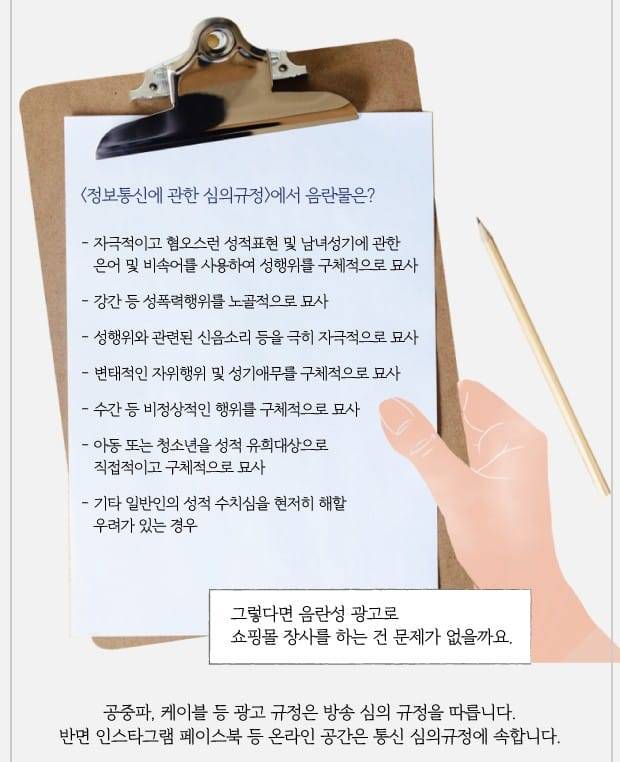 <정보통신에 관한 심의규정>에서 음란물은?
- 자극적이고 혐오스런 성적표현 및 남녀성기에 관한
은어 및 비속어를 사용하여 성행위를 구체적으로 묘사
- 강간 등 성폭력행위를 노골적으로 묘사
- 성행위와 관련된 신음소리 등을 극히 자극적으로 묘사
- 변태적인 자위행위 및 성기애무를 구체적으로 묘사
- 수간 등 비정상적인 행위를 구체적으로 묘사
- 아동 또는 청소년을 성적 유희대상으로
직접적이고 구체적으로 묘사
- 기타 일반인의 성적 수치심을 현저히 해할
우려가 있는 경우
그렇다면 음란성 광고로
쇼핑몰 장사를 하는 건 문제가 없을까요.
공중파, 케이블 등 광고 규정은 방송 심의 규정을 따릅니다.
반면 인스타그램 페이스북 등 온라인 공간은 통신 심의규정에 속합니다.